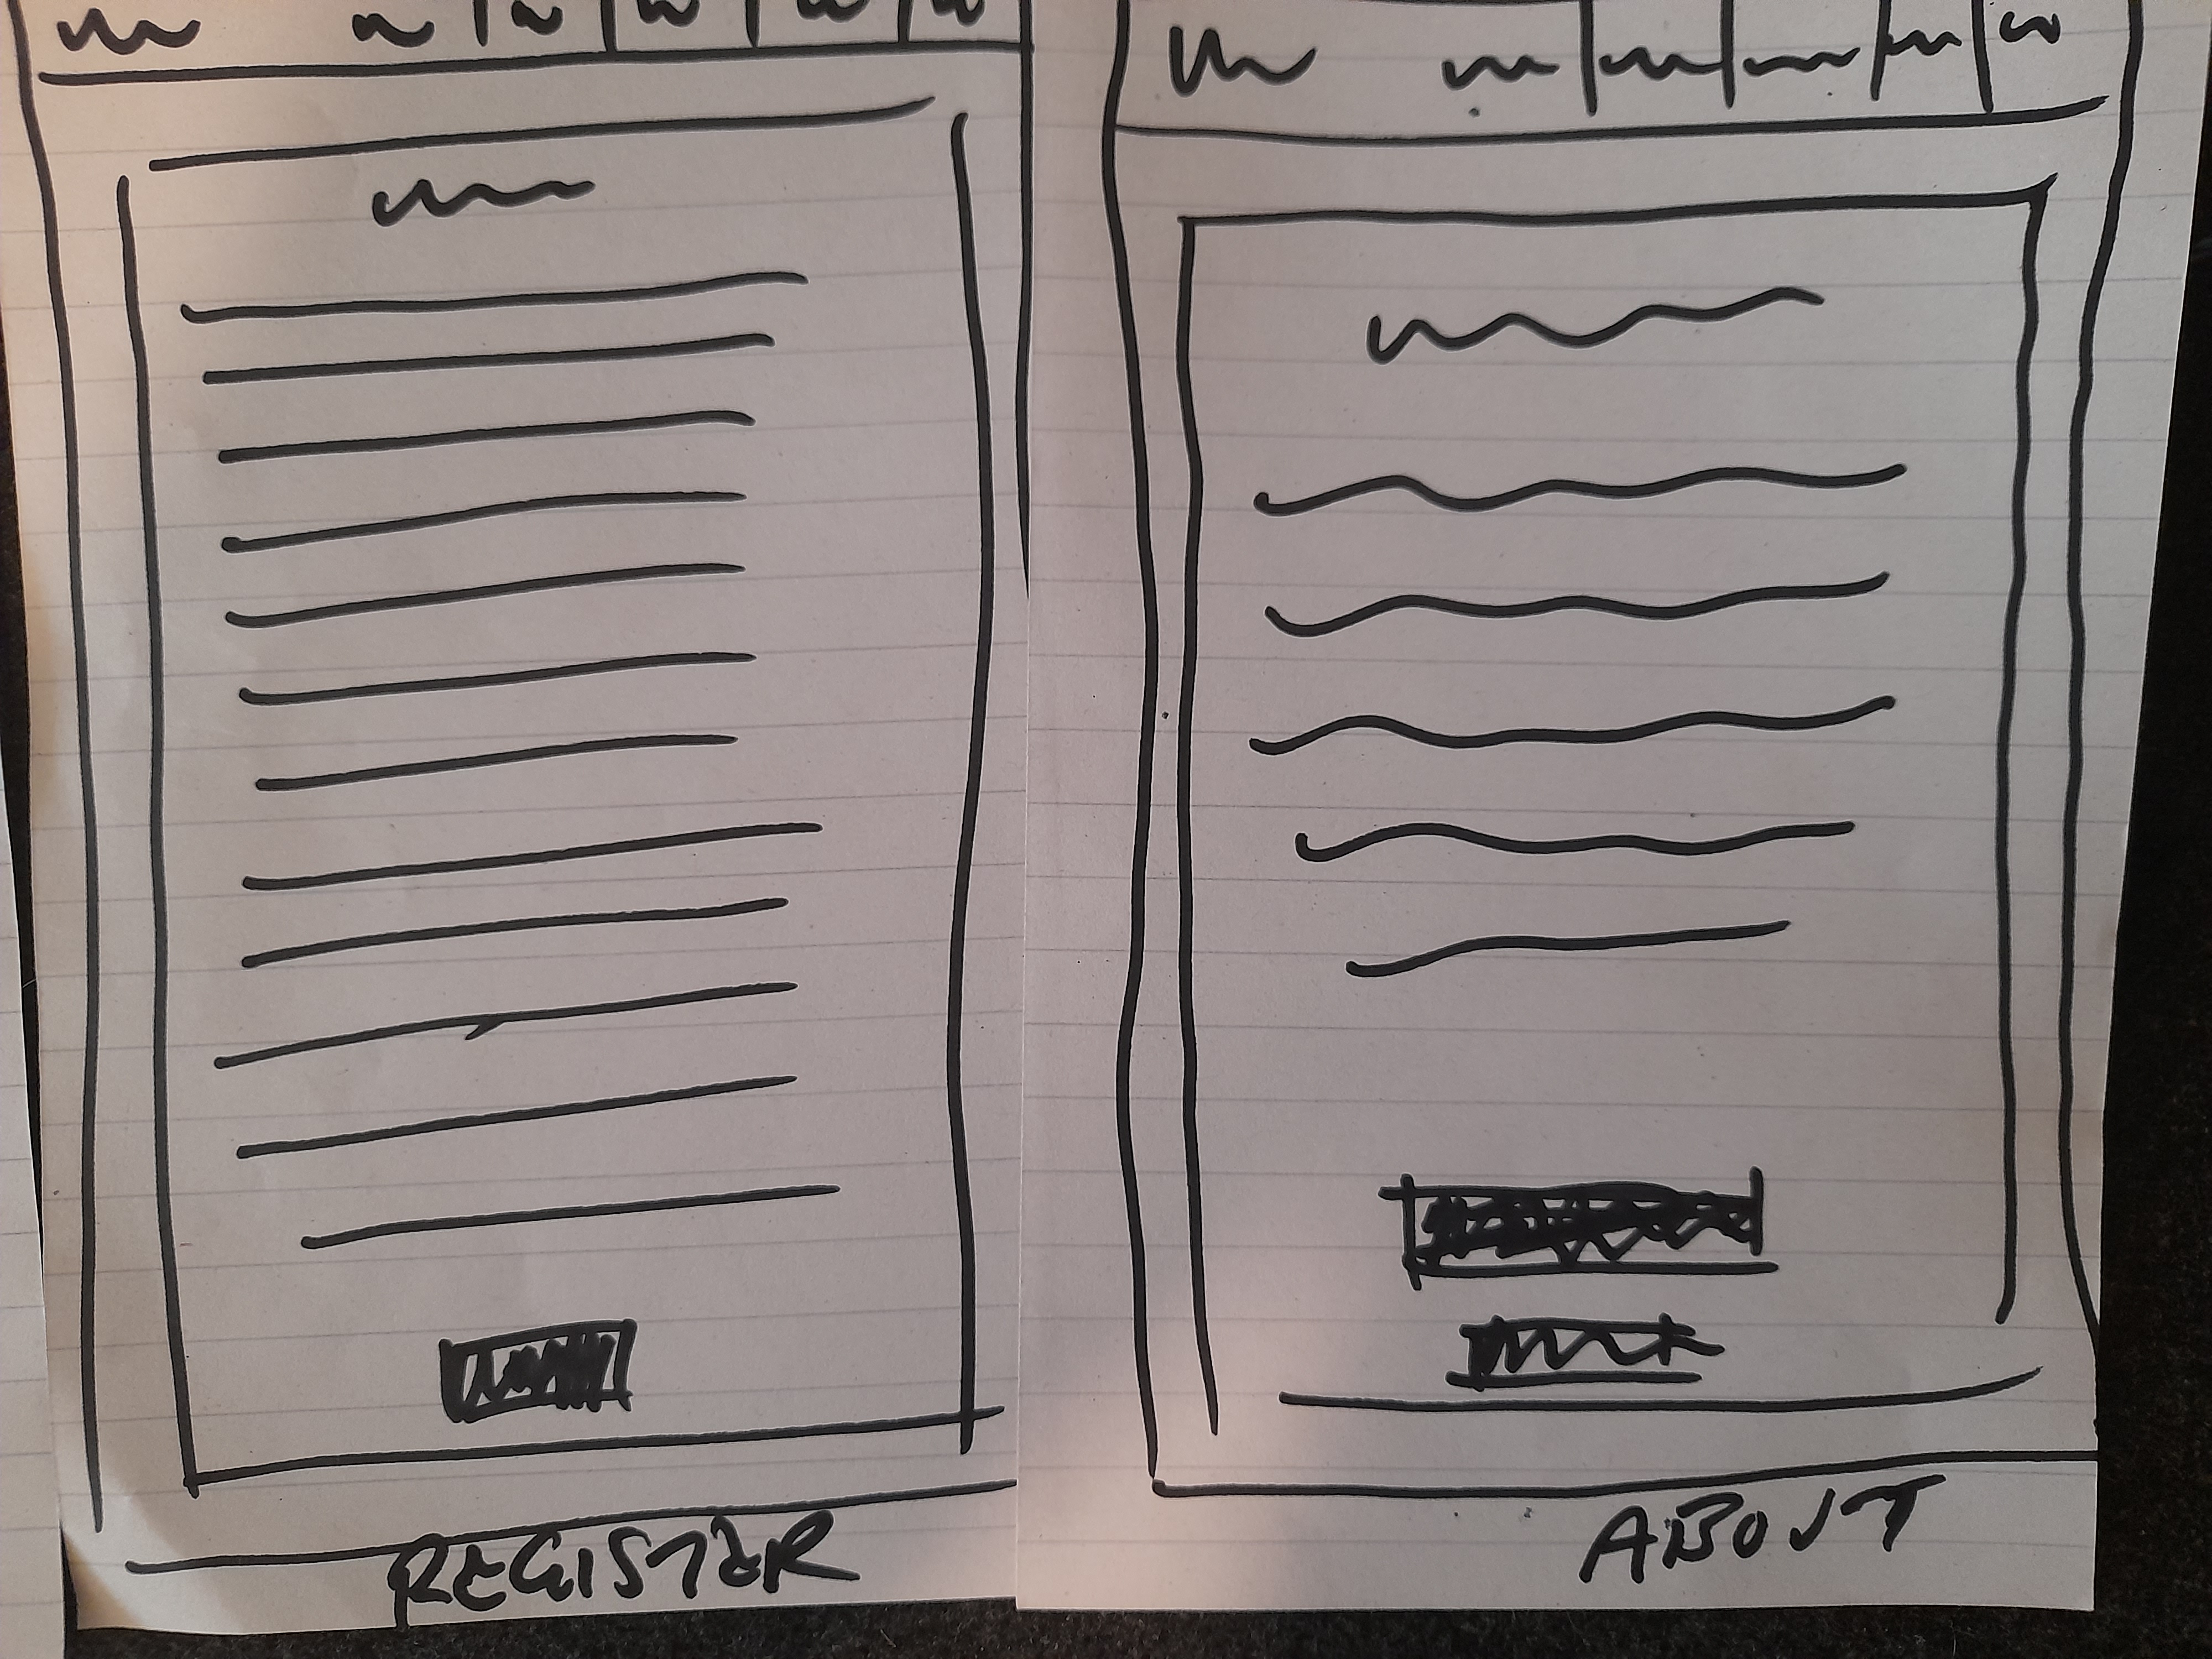 REGISTER
ABOUT